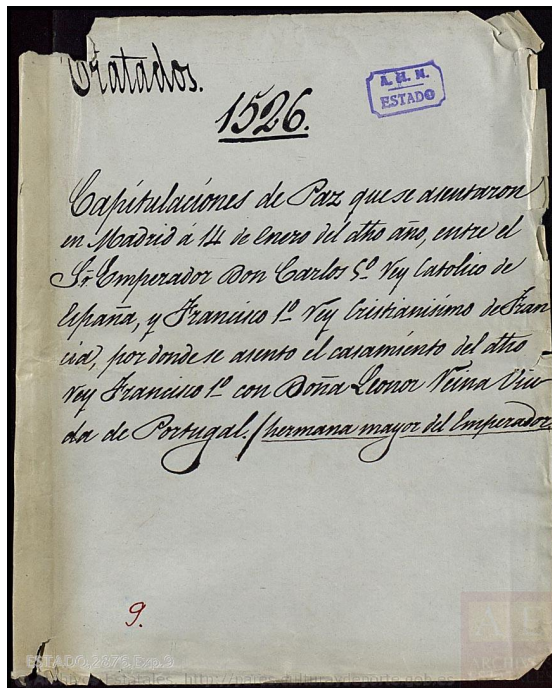 Tratados.
A. H. N.
ESTADO
1526.
Capitulaciones de Paz que se asentaron
en Madrid á 14 de Enero del dho año, entre el
Sr. Emperador Don Carlos 5º Rey Catolico de
España, y Francisco 1º Rey Cristianisimo de Fran
cia, por donde se asento el casamiento del dho
Rey Francisco 1º con Doña Leonor Reina Viu-
da de Portugal./hermana mayor del Emperador.
9.
ESTADO,2876,Exp.9
ARCHIV